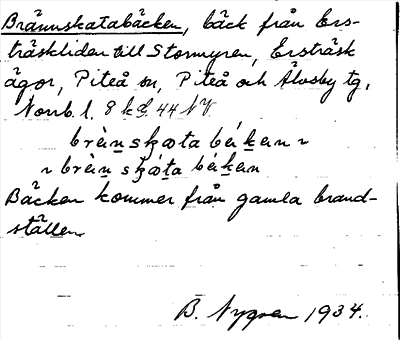 Brännskatabäcken, bäck från Ers-
träskliden till Stormyren, Ersträsk
ägor, Piteå sn, Piteå och Älvsby tg,
Norrb. l. 8 k d. 44 NV
brän skata bäken ~
~ brän skata bäken
Bäcken kommer från gamla brand-
ställen
B. Nygren 1934.